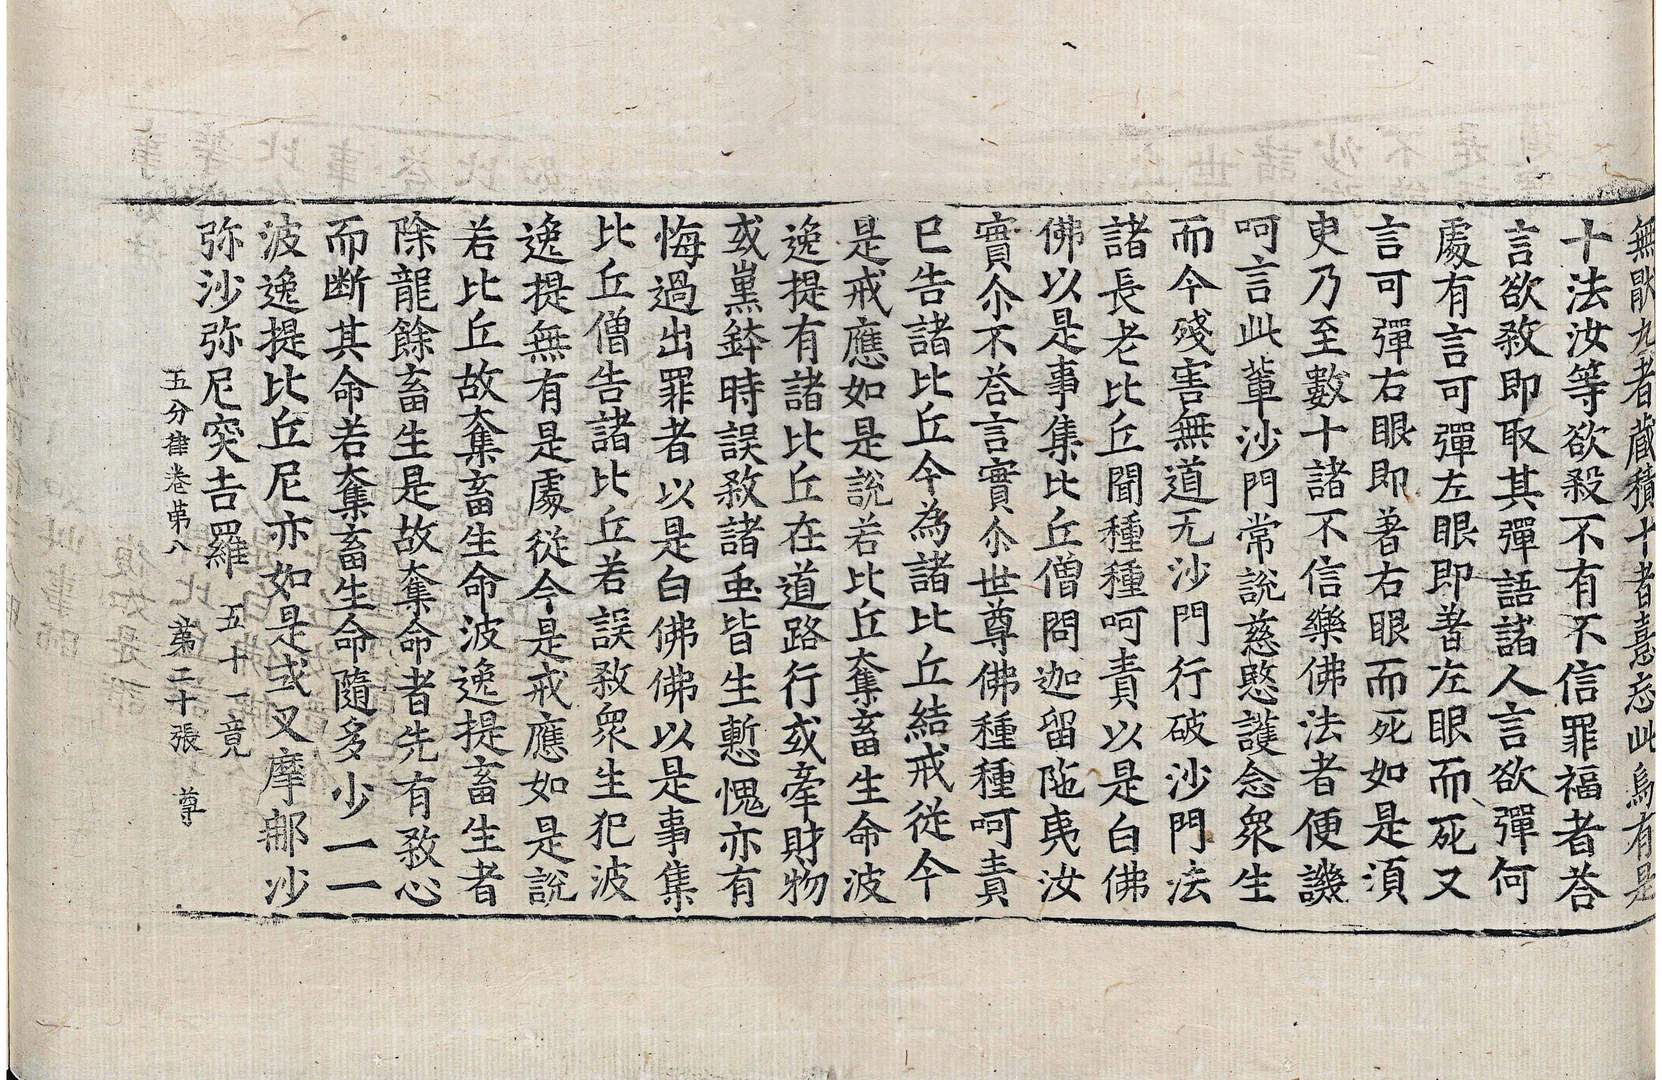 無猒九者藏積十者憙忘此烏有是
十法汝等欲殺不有不信罪福者荅
言欲敎即取其彈語諸人言欲彈何
處有言可彈左眼即著左眼而死又
言可彈右眼即著右眼而死如是須
㬰乃至數十諸不信樂佛法者便譏
呵言此輩沙門常說慈愍護念衆生
而今殘害無道无沙門行破沙門法
諸長老比丘聞種種呵責以是白佛
佛以是事集比丘僧問迦留陁夷汝
實尒不荅言實尒世尊佛種種呵責
已告諸比丘今為諸比丘結戒従今
是戒應如是說若比丘奪畜生命波
逸提有諸比丘在道路行或牽財物
或熏鉢時誤敎諸虫皆生慙愧亦有
悔過出罪者以是白佛佛以是事集
比丘僧告諸比丘若誤敎衆生犯波
逸提無有是處従今是戒應如是說
若比丘故奪畜生命波逸提畜生者
除龍餘畜生是故奪命者先有敎心
而断其命若奪畜生命隨多少一一
波逸提比丘尼亦如是式叉摩那沙
弥沙弥尼突吉羅 五十一竟
五分律卷第八 第二十張 尊